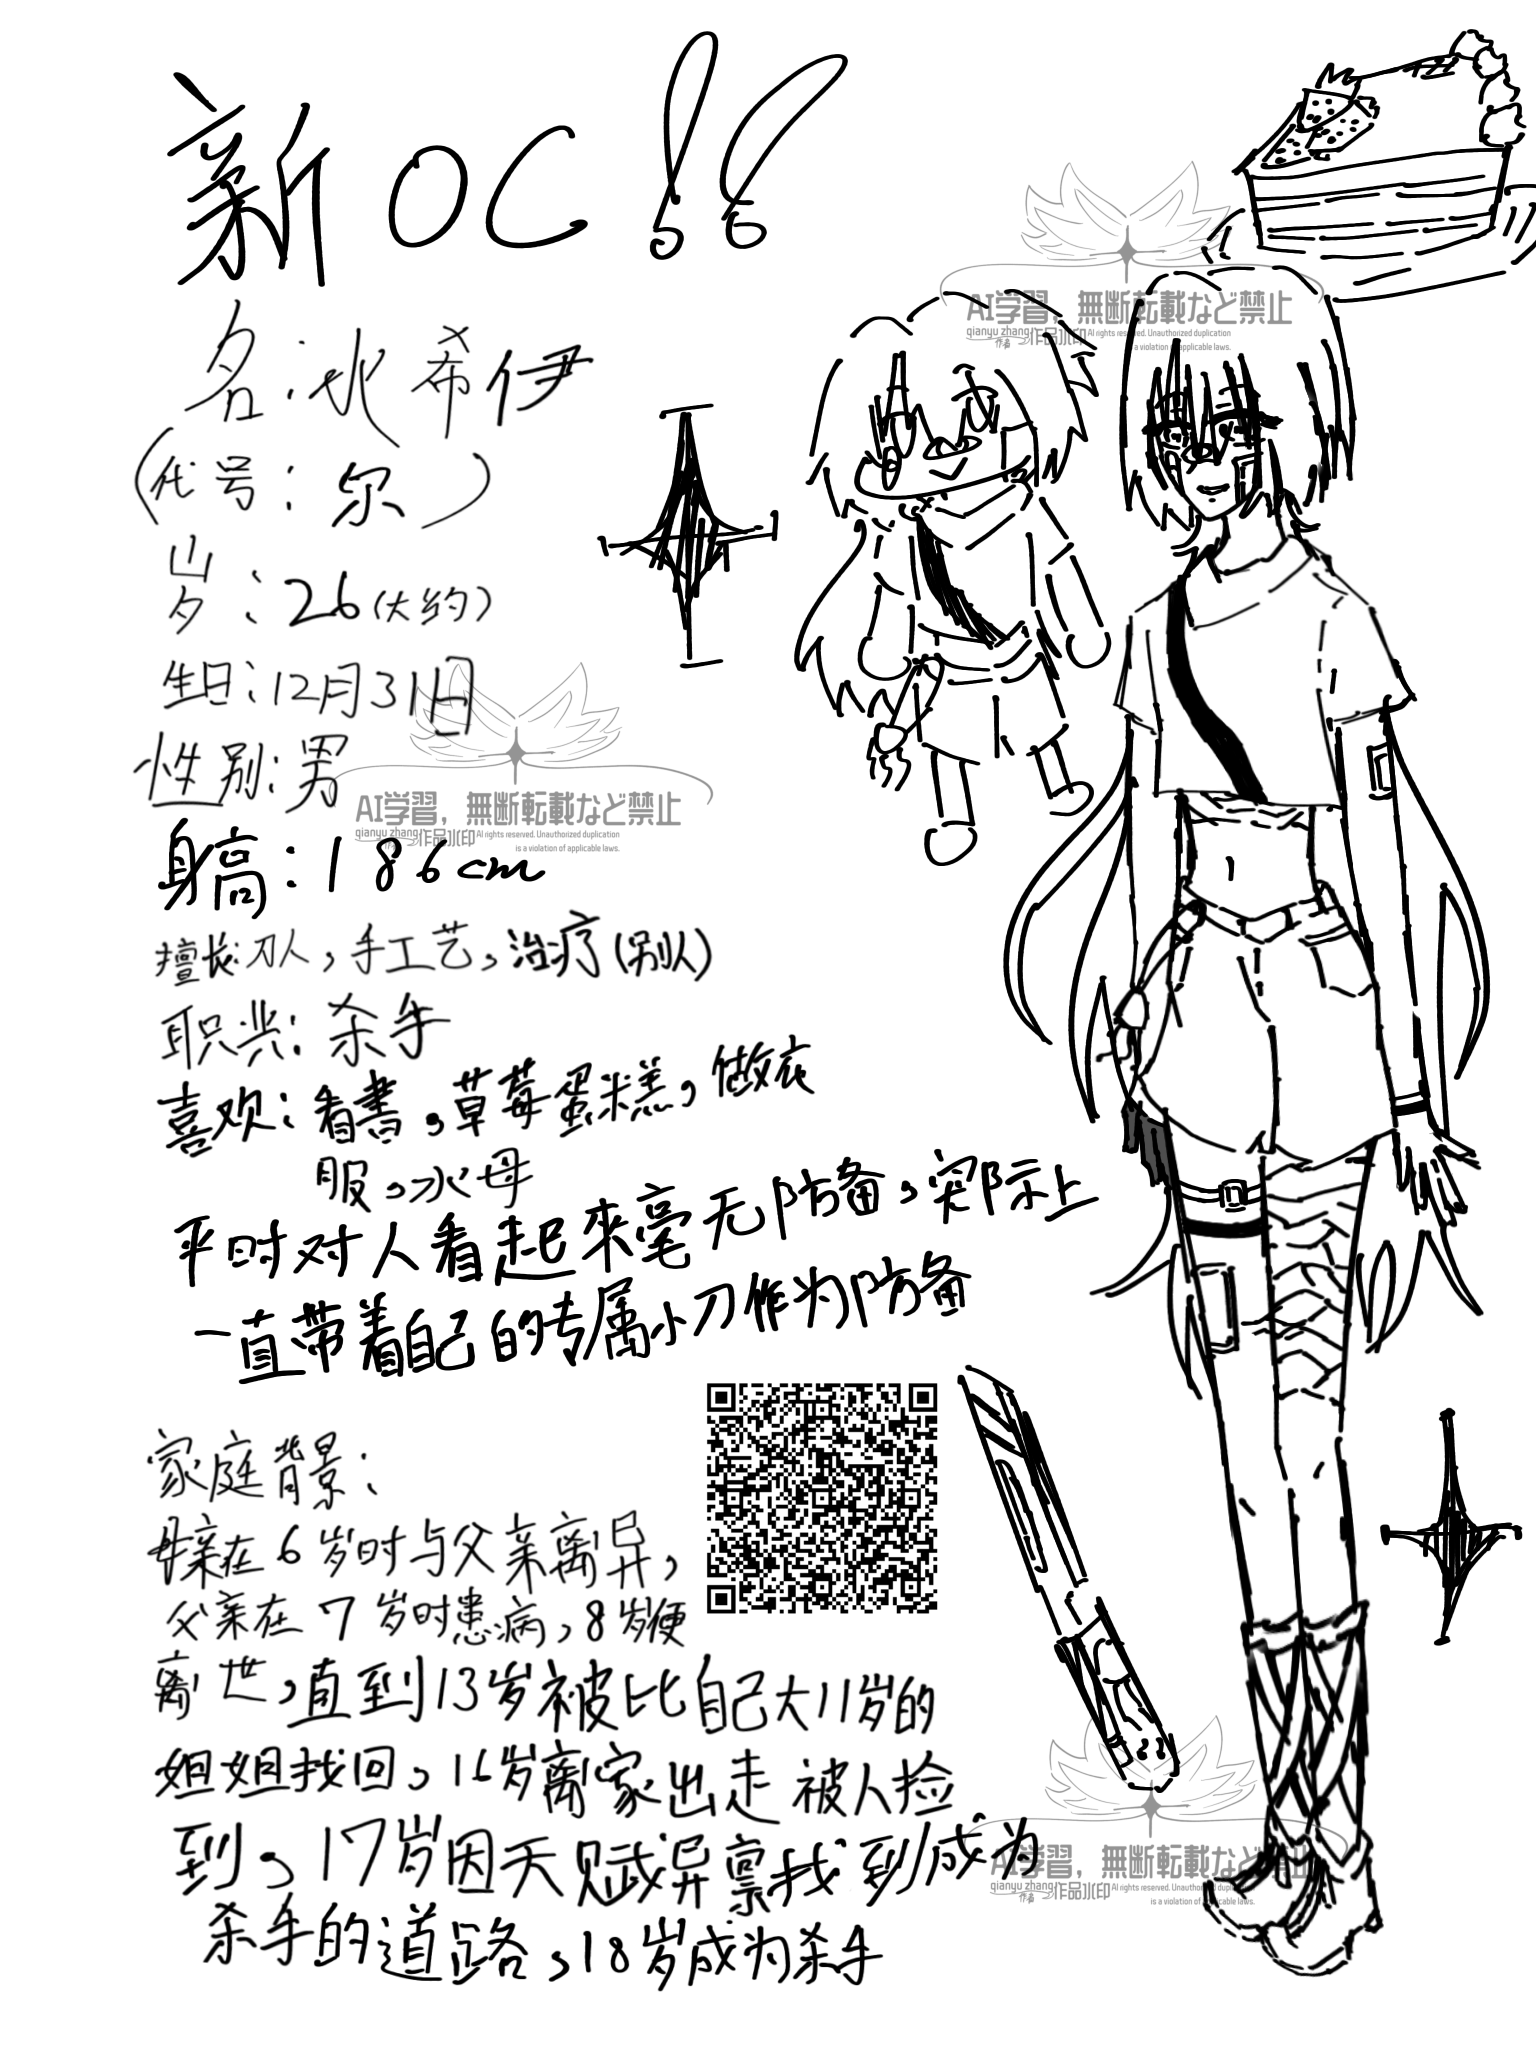 新OC!!
名:水希伊
(代号:尔)
岁:26(大约)
生日:12月31日
性别:男
身高:186cm
擅长:刀人,手工艺,治疗(别人)
职业:杀手
喜欢:看書,草莓蛋糕,做衣
服,水母
平时对人看起來毫无防备,实际上
一直带着自己的专属小刀作为防备
家庭背景:
母亲在6岁时与父亲离异,
父亲在7岁时患病,8岁便
离世,直到13岁被比自己大11岁的
姐姐找回,16岁离家出走被人捡
到,17岁因天赋异禀找到成为
杀手的道路,18岁成为杀手
AI学習,無断転載など禁止
qianyu zhang 作品水印 AI rights resved. Unauthorized duplication
作者
is a violation of applicable laws.
AI学習,無断転載など禁止
qianyu zhang 作品水印 AI rights resved. Unauthorized duplication
is a violation of applicable laws.
AI学習,無断転載など禁止
qianyu zhang 作品水印 AI rights resved. Unauthorized duplication
作者
is a violation of applicable laws.